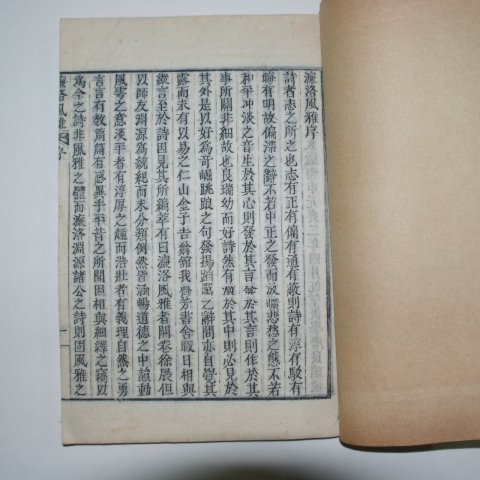 濂洛風雅序
詩者志之所之也志有正有偏有通有蔽則詩有淳有駁有
晦有明故偏滯之辭不若中正之發而放曠悲愁之態不若
和平冲淡之音生於其心則發於其言發於其言則作於其
事所關非細故也良瑞幼而好詩然有蔽於其中則必見於
其外是以好爲崎嶇跳踉之句發揚之辭間亦自覺其
露而未有以易之仁山金子吉翁館我齊芳書舍暇日相與
縱言至於詩因見其所編萃有曰濂洛風雅者開卷徐展但
以師友淵源爲統紀而未分類例然皆涵暢道德之中歆動
風雩之意淡平者有淳厚之趣而浩壯者有義理自然之勇
言言有教篇篇有感異乎平昔之所聞因相與細繹之竊以
爲今之詩非風雅之體而濂洛淵源諸公之詩則固風雅之
濂洛風雅 序 一